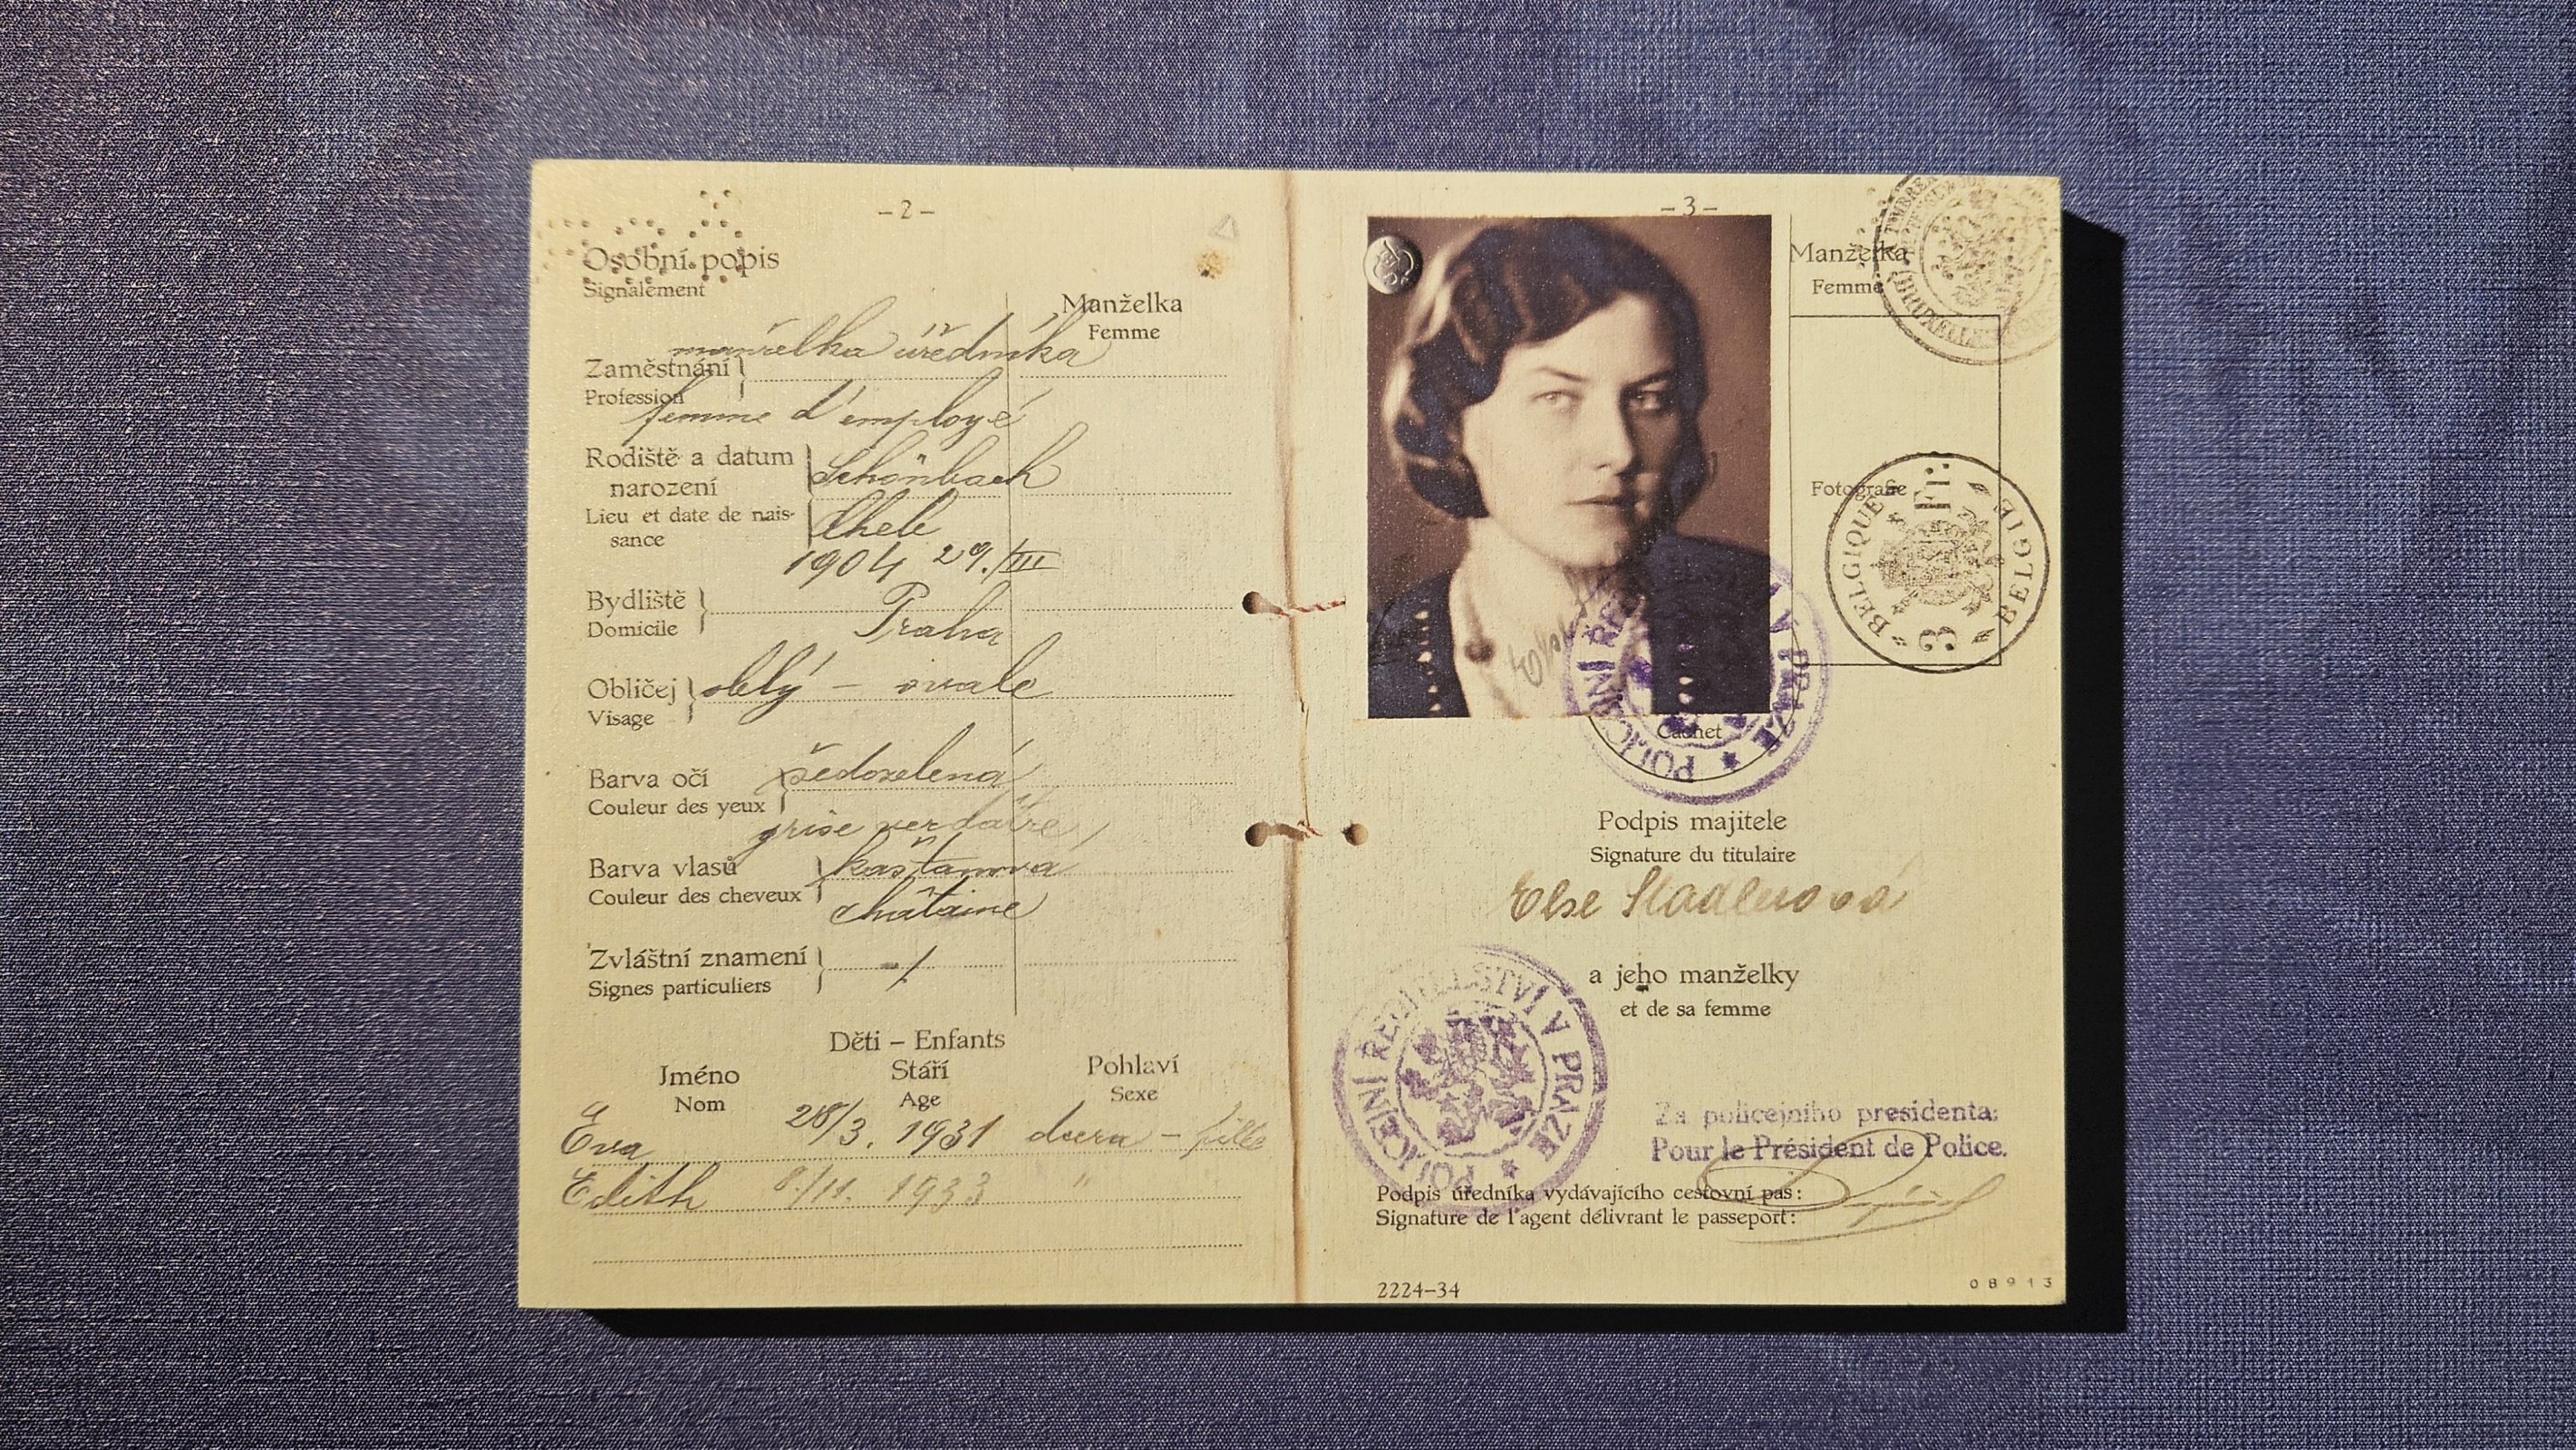 -2-
Osobní popis
Signalement
Manželka
Femme
manželka úředníka
Zaměstnání
Profession
femme d'employé
Rodiště a datum
narození
Schönbach
Lieu et date de nais-
sance
Cheb
1904 29./III
Bydliště
Domicile
Praha
Obličej
Visage
oblý - ovale
Barva očí
Couleur des yeux
šedozelená
grise verdâtre
Barva vlasů
Couleur des cheveux
kaštanová
châtaine
Zvláštní znamení
Signes particuliers
-/
Děti – Enfants
Jméno
Nom
Stáří
Age
Pohlaví
Sexe
Eva 28/3. 1931 dcera - fille
Edith 8./11. 1933 "
-3-
Manželka
Femme
Fotografie
BELGIQUE 3 Fr. BELGIË 3
Cachet
POLICEJNÍ ŘEDITELSTVÍ V PRAZE
Podpis majitele
Signature du titulaire
Else Stadlerová
a jeho manželky
et de sa femme
POLICEJNÍ ŘEDITELSTVÍ V PRAZE
Za policejního presidenta:
Pour le Président de Police.
Podpis úředníka vydávajícího cestovní pas:
Signature de l'agent délivrant le passeport:
2224–34
08913